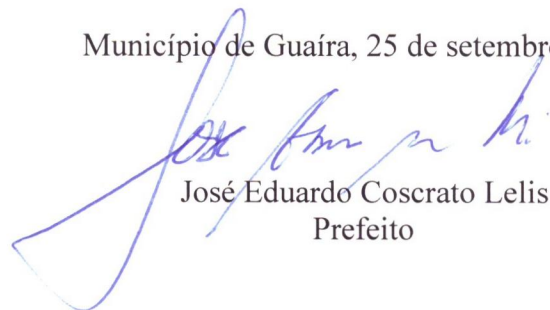 Município de Guaíra, 25 de setembr
José
José Eduardo Coscrato Lelis
Prefeito